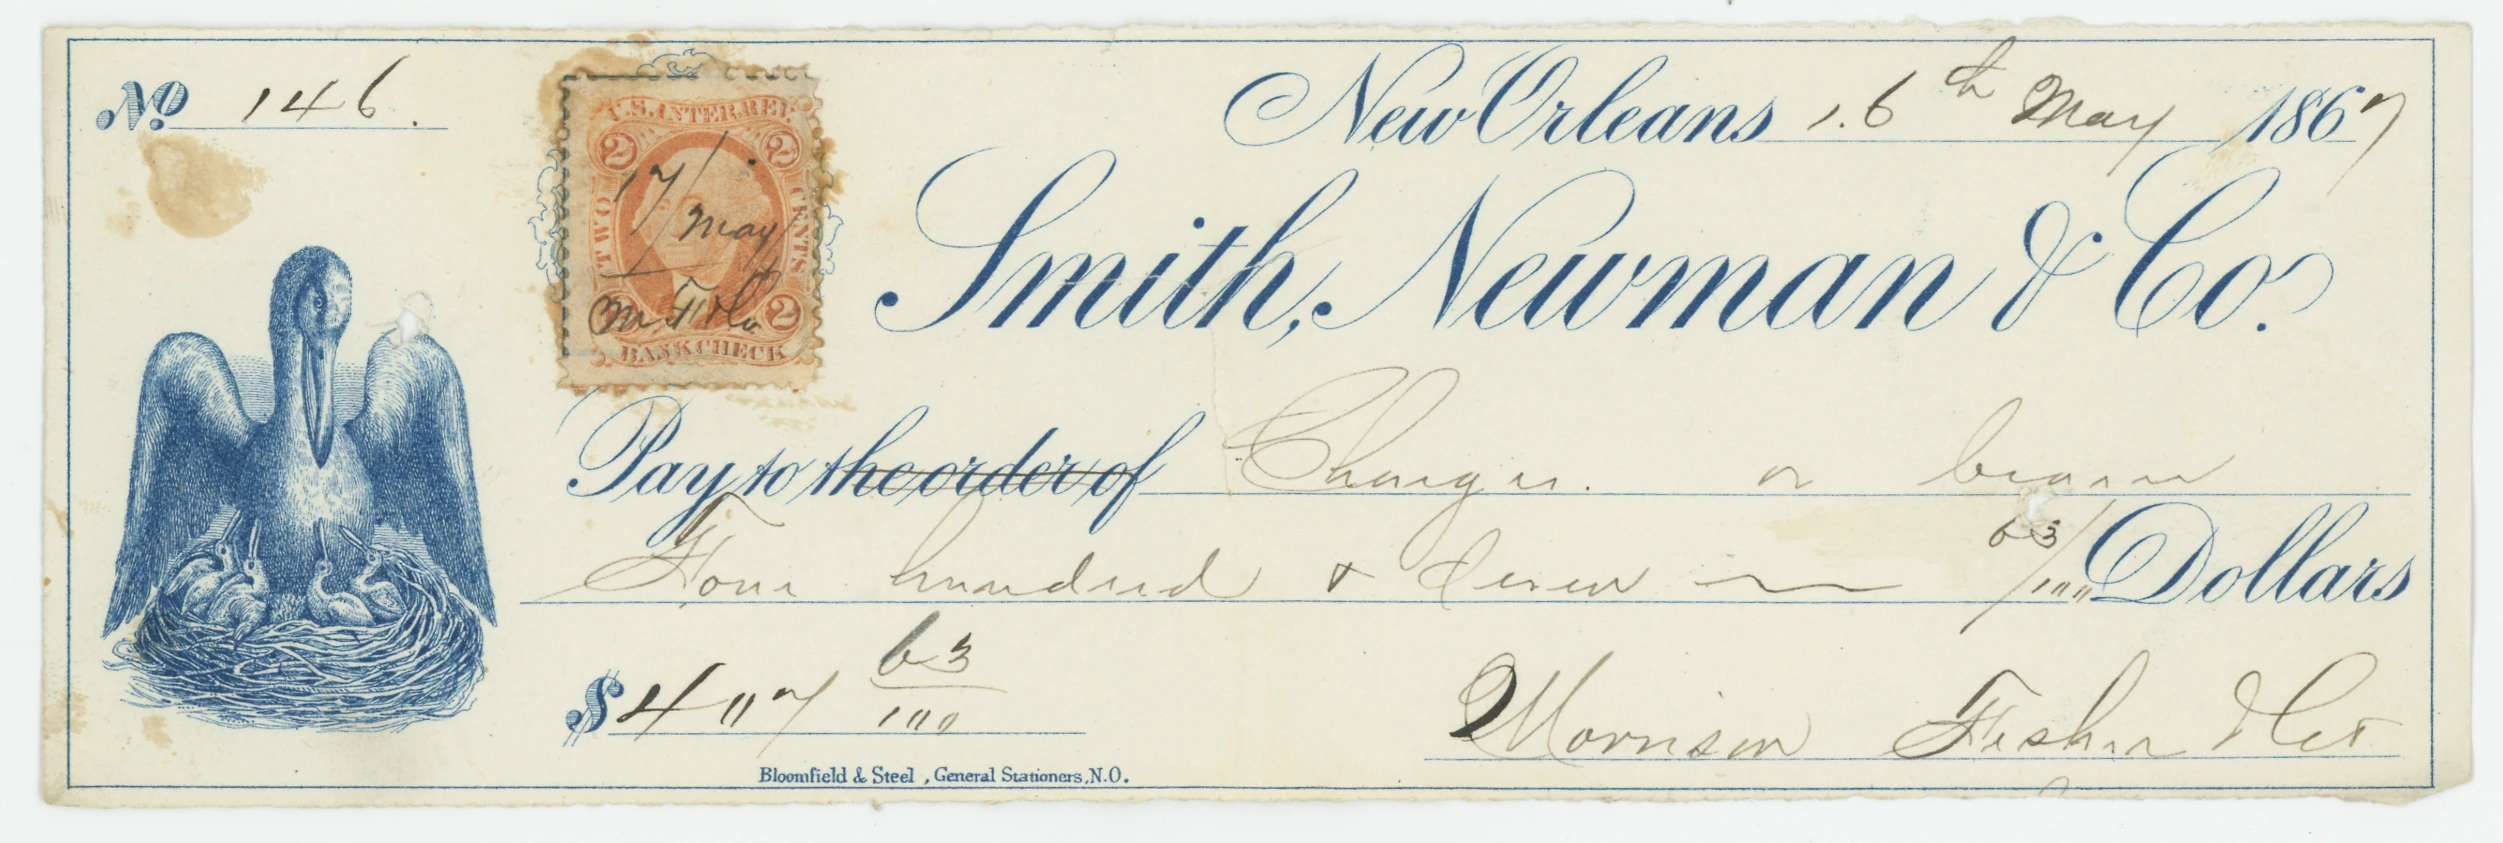 No 146.
New Orleans 16th May 1867
U.S. INTER. REV.
2 2
TWO CENTS
17/May
M F & Co
2
BANK CHECK
Smith, Newman & Co.
Pay to the order of Charges. or bearer
Four hundred & seven 63/100 Dollars
$407 63/100
Morrison Fisher & Co
Bloomfield & Steel, General Stationers, N.O.